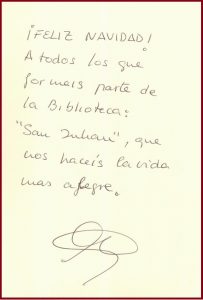 ¡FELIZ NAVIDAD!
A todos los que
formais parte de
la Biblioteca:
"San Julian", que
nos haceis la vida
mas alegre.